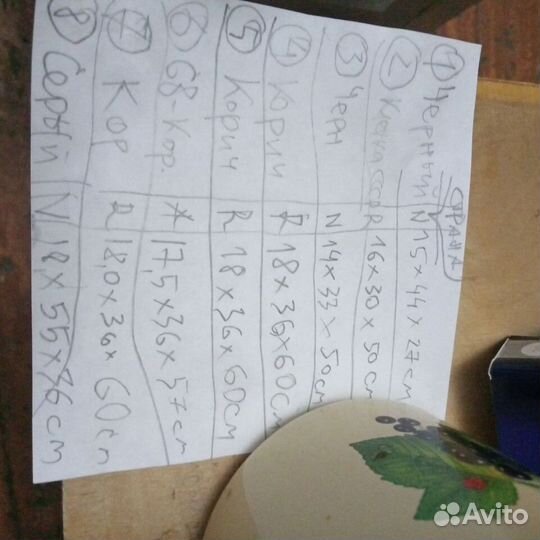 СТРАНА
① ЧЕРНЫЙ N 15 x 44 x 27 см
② R 16 x 30 x 50 см
③ Черн N 14 x 33 x 50 см
④ Корич R 18 x 36 x 60 см
⑤ Корич R 18 x 36 x 60 см
⑥ G8-Кор. A 17,5 x 36 x 57 см
⑦ Кор R 18,0 x 36 x 60 см
⑧ Серый N 18 x 55 x 36 см
Avito